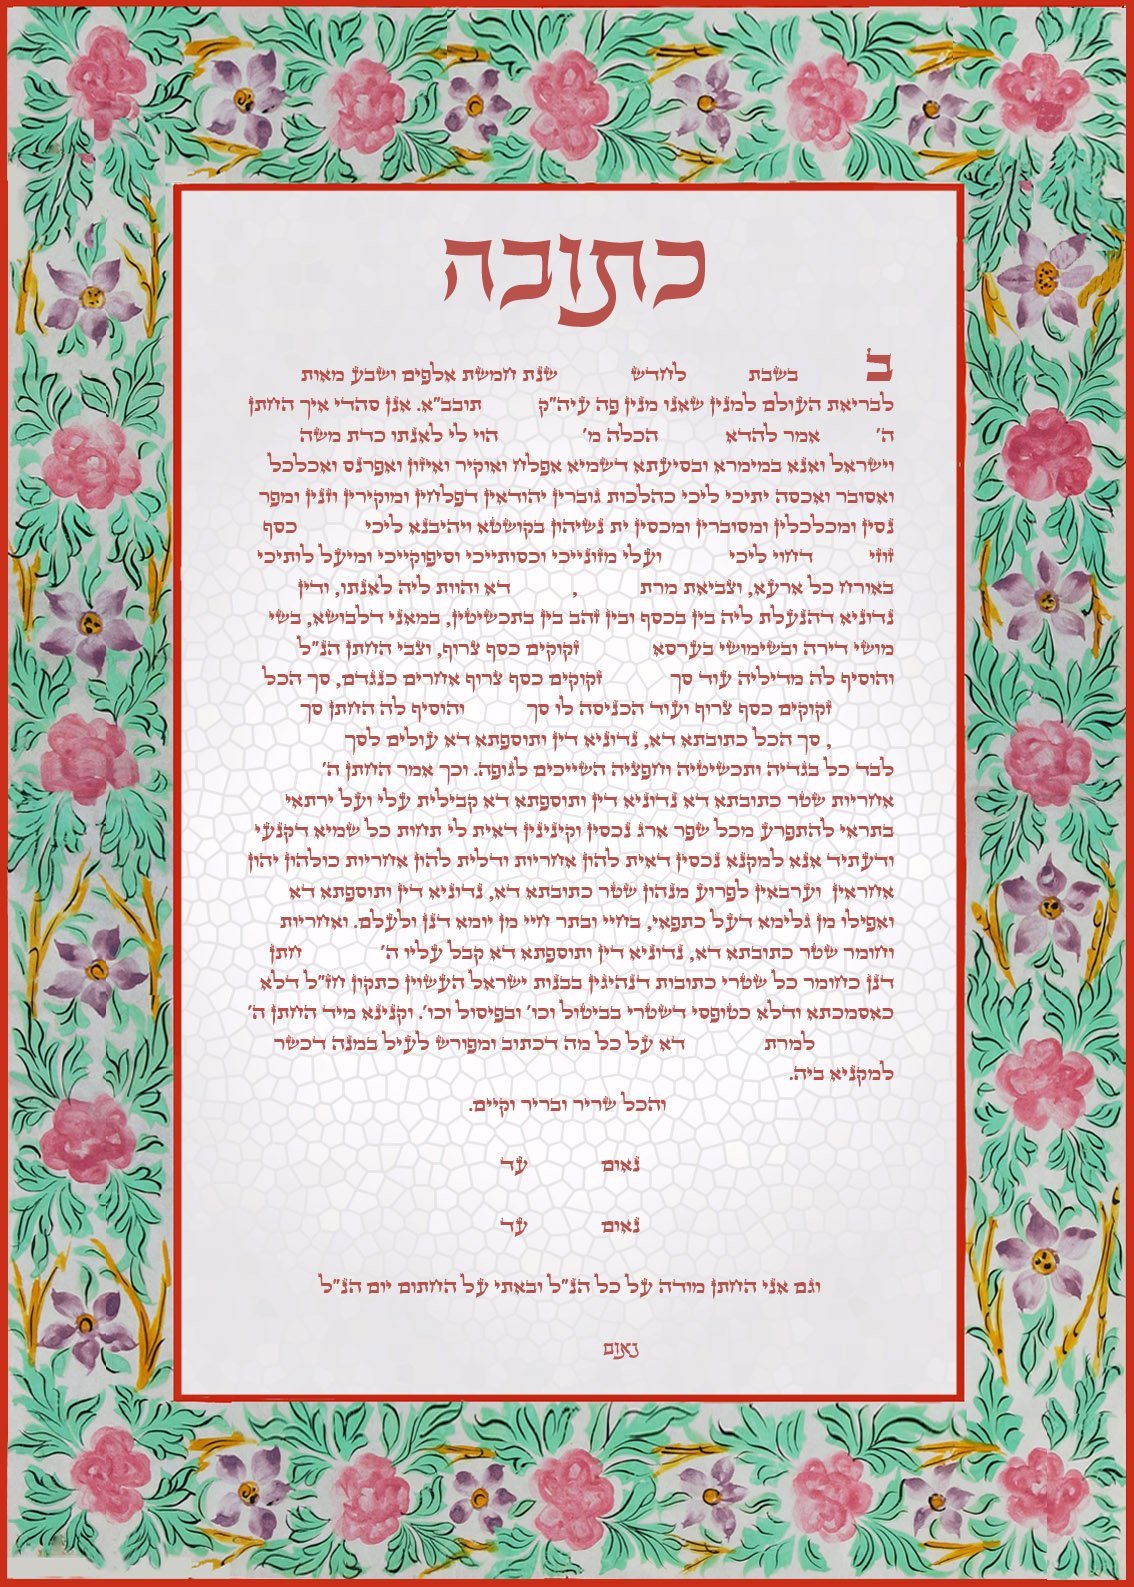 כתובה
ב בשבת לחדש שנת חמשת אלפים ושבע מאות
לבריאת העולם למנין שאנו מנין פה עיה"ק תובב"א. אנן סהדי איך החתן
ה' אמר להדא הכלה מ' הוי לי לאנתו כדת משה
וישראל ואנא במימרא ובסיעתא דשמיא אפלח ואוקיר ואיזון ואפרנס ואכלכל
ואסובר ואכסה יתיכי ליכי כהלכות גוברין יהודאין דפלחין ומוקירין וזנין ומפר
נסין ומכלכלין ומסוברין ומכסין ית נשיהון בקושטא ויהיבנא ליכי כסף
זוזי דחוי ליכי ועלי מזונייכי וכסותייכי וסיפוקייכי ומיעל לותיכי
באורח כל ארעא, וצביאת מרת , דא והוות ליה לאנתו, ודין
נדוניא דהנעלת ליה בין בכסף ובין זהב בין בתכשיטין, במאני דלבושא, בשי
מושי דירה ובשימושי בערסא זקוקים כסף צרוף, וצבי החתן הנ"ל
והוסיף לה מדיליה עוד סך זקוקים כסף צרוף אחרים כנגדם, סך הכל
זקוקים כסף צרוף ועוד הכניסה לו סך והוסיף לה החתן סך
, סך הכל כתובתא דא, נדוניא דין ותוספתא דא עולים לסך
לבד כל בגדיה ותכשיטיה וחפציה השייכים לגופה. וכך אמר החתן ה'
אחריות שטר כתובתא דא נדוניא דין ותוספתא דא קבילית עלי ועל ירתאי
בתראי להתפרע מכל שפר ארג נכסין וקינינין דאית לי תחות כל שמיא דקנעי
ודעתיד אנא למקנא נכסין דאית להון אחריות ודלית להון אחריות כולהון יהון
אחראין וערבאין לפרוע מנהון שטר כתובתא דא, נדוניא דין ותוספתא דא
ואפילו מן גלימא דעל כתפאי, בחיי ובתר חיי מן יומא דנן ולעלם. ואחריות
וחומר שטר כתובתא דא, נדוניא דין ותוספתא דא קבל עליו ה' חתן
דנן כחומר כל שטרי כתובות דנהיגין בבנות ישראל העשוין כתקון חז"ל דלא
כאסמכתא ודלא כטופסי דשטרי בביטול וכו' ובפיסול וכו'. וקנינא מיד החתן ה'
למרת דא על כל מה דכתוב ומפורש לעיל במנה דכשר
למקניא ביה.
והכל שריר ובריר וקיים.
נאום עד
נאום עד
וגם אני החתן מודה על כל הנ"ל ובאתי על החתום יום הנ"ל
נאום